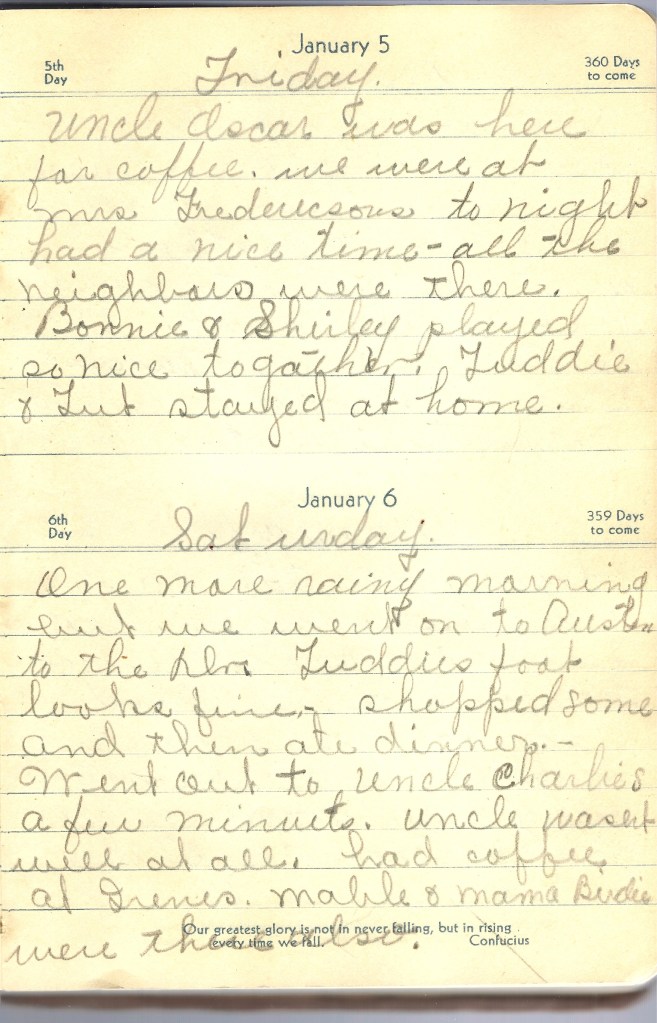 January 5
5th Day
360 Days to come
Friday.
Uncle Oscar was here
for coffee. we were at
mrs Fredericsons to night
had a nice time - all the
neighbors were there.
Bonnie & Shirley played
so nice togather. Tuddie
& Tut stayed at home.
January 6
6th Day
359 Days to come
Saturday.
One more rainy morning
but we went on to Austin
to the Dr. Tuddies foot
looks fine, - shopped some
and then ate dinner. -
Went out to Uncle Charlies
a few minuets. Uncle wasent
well at all. had coffee
at Irenes. Mable & Mama Birdie
were there also.
Our greatest glory is not in never falling, but in rising
every time we fall. Confucius